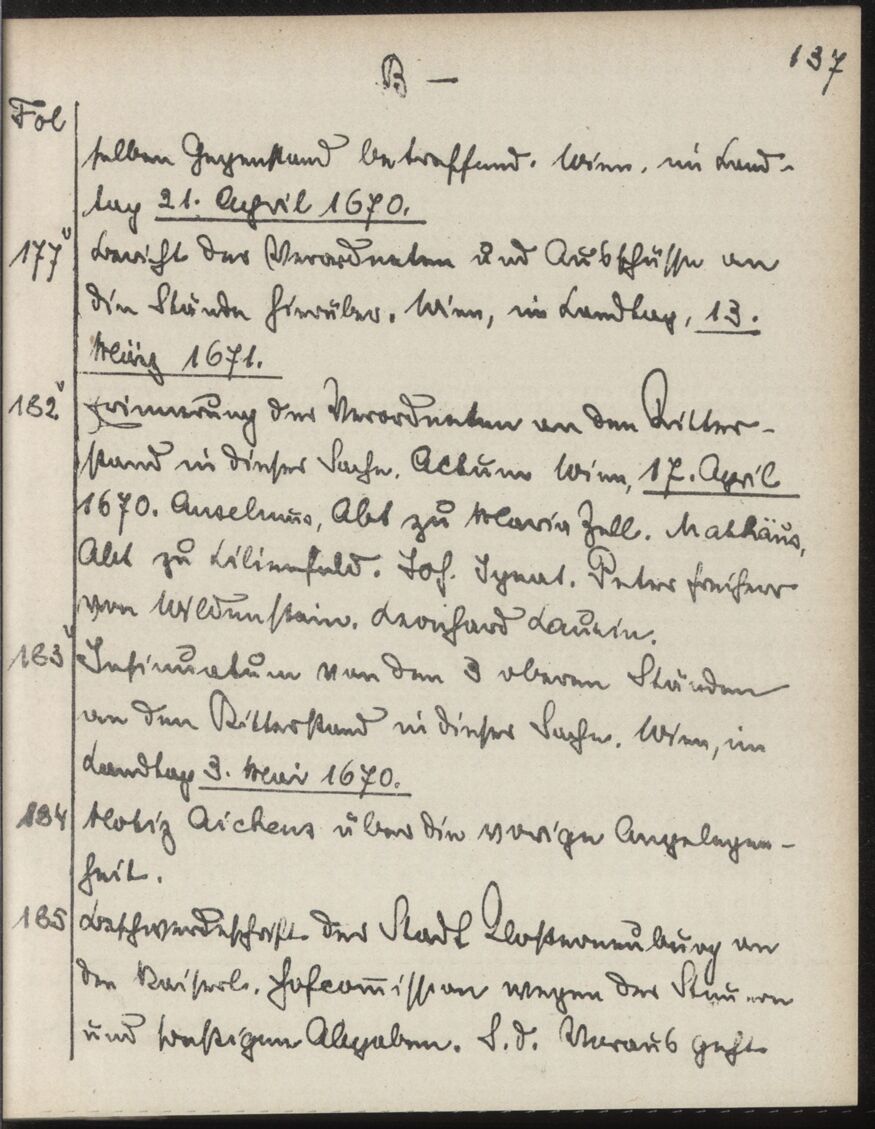 137
B —
Fol
selben Gegenstand betreffend. Wien, im Land-
tag 21. April 1670.
177v Bericht der Verordneten und Ausschüsse an
die Stände hierüber. Wien, im Landtag, 13.
März 1671.
182v Erinnerung der Verordneten an den Ritter-
stand in dieser Sache. Actum Wien, 17. April
1670. Anselmus, Abt zu Maria Zell. Mathäus,
Abt zu Lilienfeld. Joh. Ignat. Peter Freiherr
von Wildenstein. Leonhard
183v Insinuatum von den 3 oberen Ständen
an den Ritterstand in dieser Sache. Wien, im
Landtag 3. Mai 1670.
184 Notiz Aichens über die vorige Angelegen-
heit.
185 Beschwerdeschrift der Stadt Klosterneuburg an
die Kaiserl. Hofcom̅ission wegen der Steuern
und sonstigen Abgaben. S.d. Voraus geht